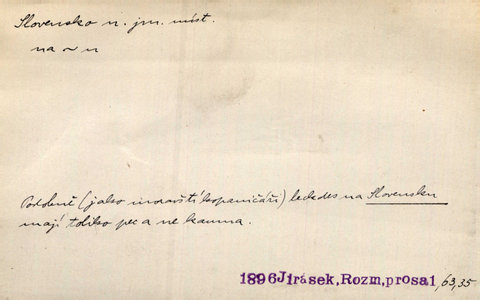 Slovensko n. jm. míst.
na ~ u
Podobně (jako moravští kopaničáři) ledckdes na Slovensku
mají toliko pec a ne kamna.
1896 Jirásek, Rozm, prosa 1, 63, 35